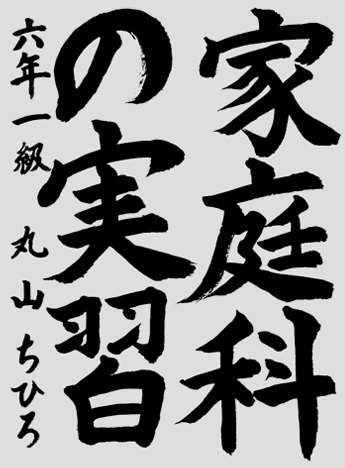 家庭科
の実習
六年一級 丸山ちひろ